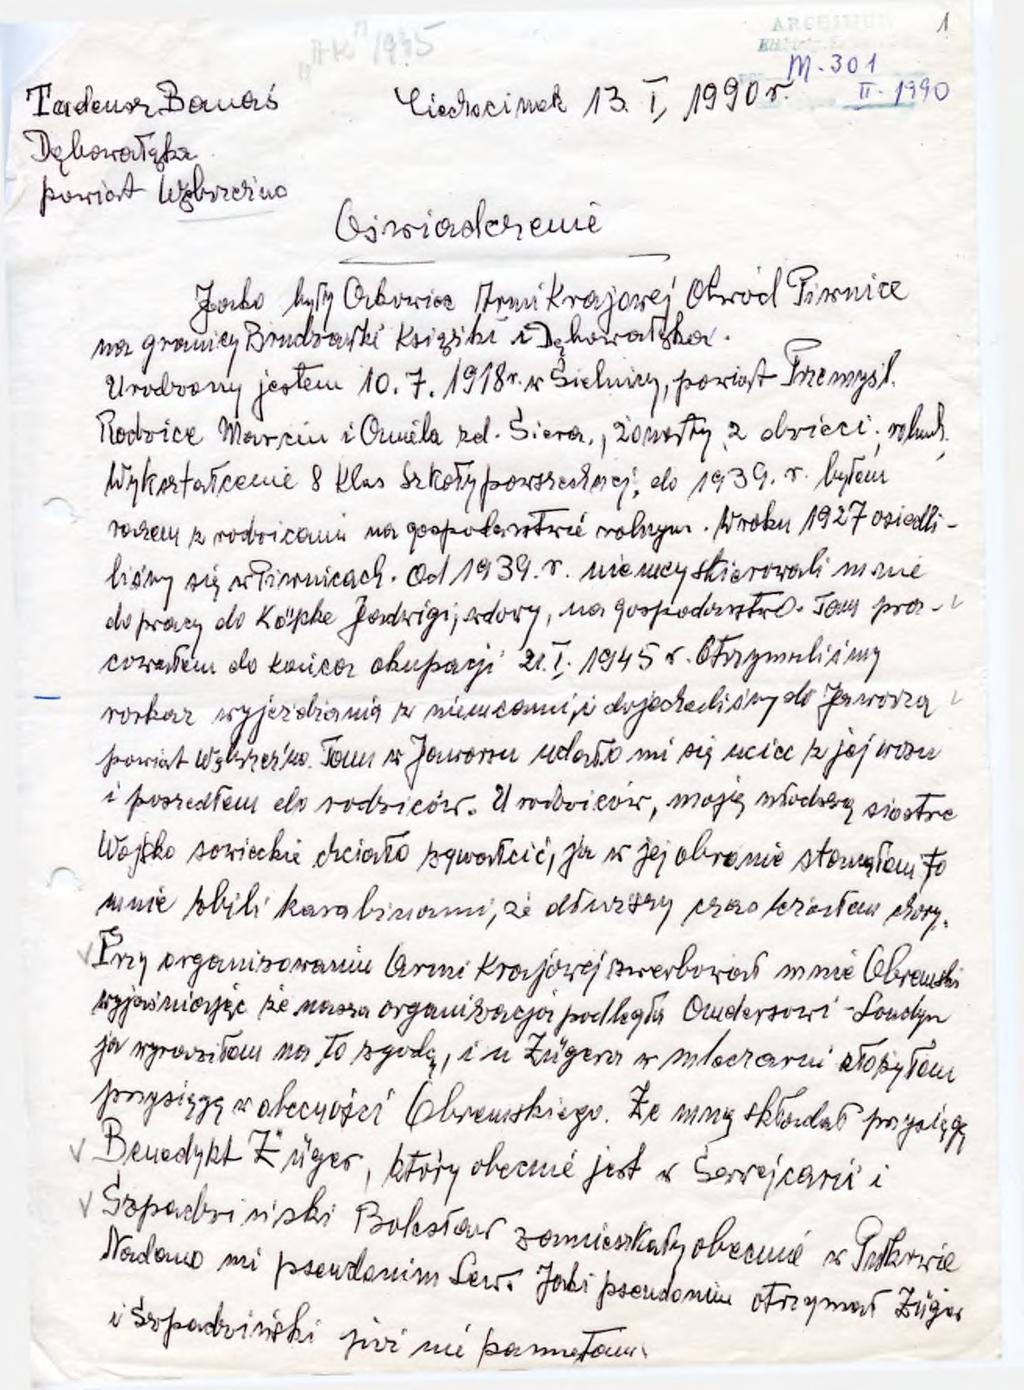 "AK" 1945
1
ARCHIWUM
M-301
II-1990
Tadeusz Banaś
Dębowałąka
powiat Wąbrzeźno
Ciechocinek 13. I, 1990 r.
Oświadczenie
Jako były Członkowie Armi Krajowej Obwód Piwnice
na granicy Brudzawki Książki i Dębowałąka.
Urodzony jestem 10.7.1918 r. w Sielnicy, powiat Przemyśl.
Rodzice Marcin i Aniela zd. Siera, żonaty, 2 dzieci, roln.
Wykształcenie 8 klas Szkoły powszechnej, do 1939. r. byłem
razem z rodzicami na gospodarstwie rolnym. W roku 1927 osiedli-
liśmy się w Piwnicach. Od 1939. r. niemcy skierowali mnie
do pracy do Köpke Jadwigi, wdowy, na gospodarstwo. Tam pra-
cowałem do końca okupacji 21. I. 1945 r. Otrzymaliśmy
rozkaz wyjeżdzania z niemcami, i dojechaliśmy do Jaworza
powiat Wąbrzeźno. Tam w Jaworzu udało mi się uciec z jej wozu
i poszedłem do rodziców. U rodziców, moją młodszą siostre
Wojsko sowieckie chciało zgwałcić, ja w jej obronie stanąłem to
mnie zbili karabinami, że dłuższy czas leżałem chory.
Przy organizowaniu Armi Krajowej zwerbował mnie Obremski
wyjaśniając że nasza organizacja podległa Andersowi - Londyn
ja wyraziłem na to zgodę, i u Zügera w mleczarni złożyłem
przysięgę w obecności Obremskiego. Ze mną składał przysięgę
Benedykt Züger, który obecnie jest w Szwejcarii i
Szpadziński Bolesław zamieszkały obecnie w
Nadano mi pseudonim Lew. Jaki pseudonim otrzymał Züger
i Szpadziński już nie pamiętam.